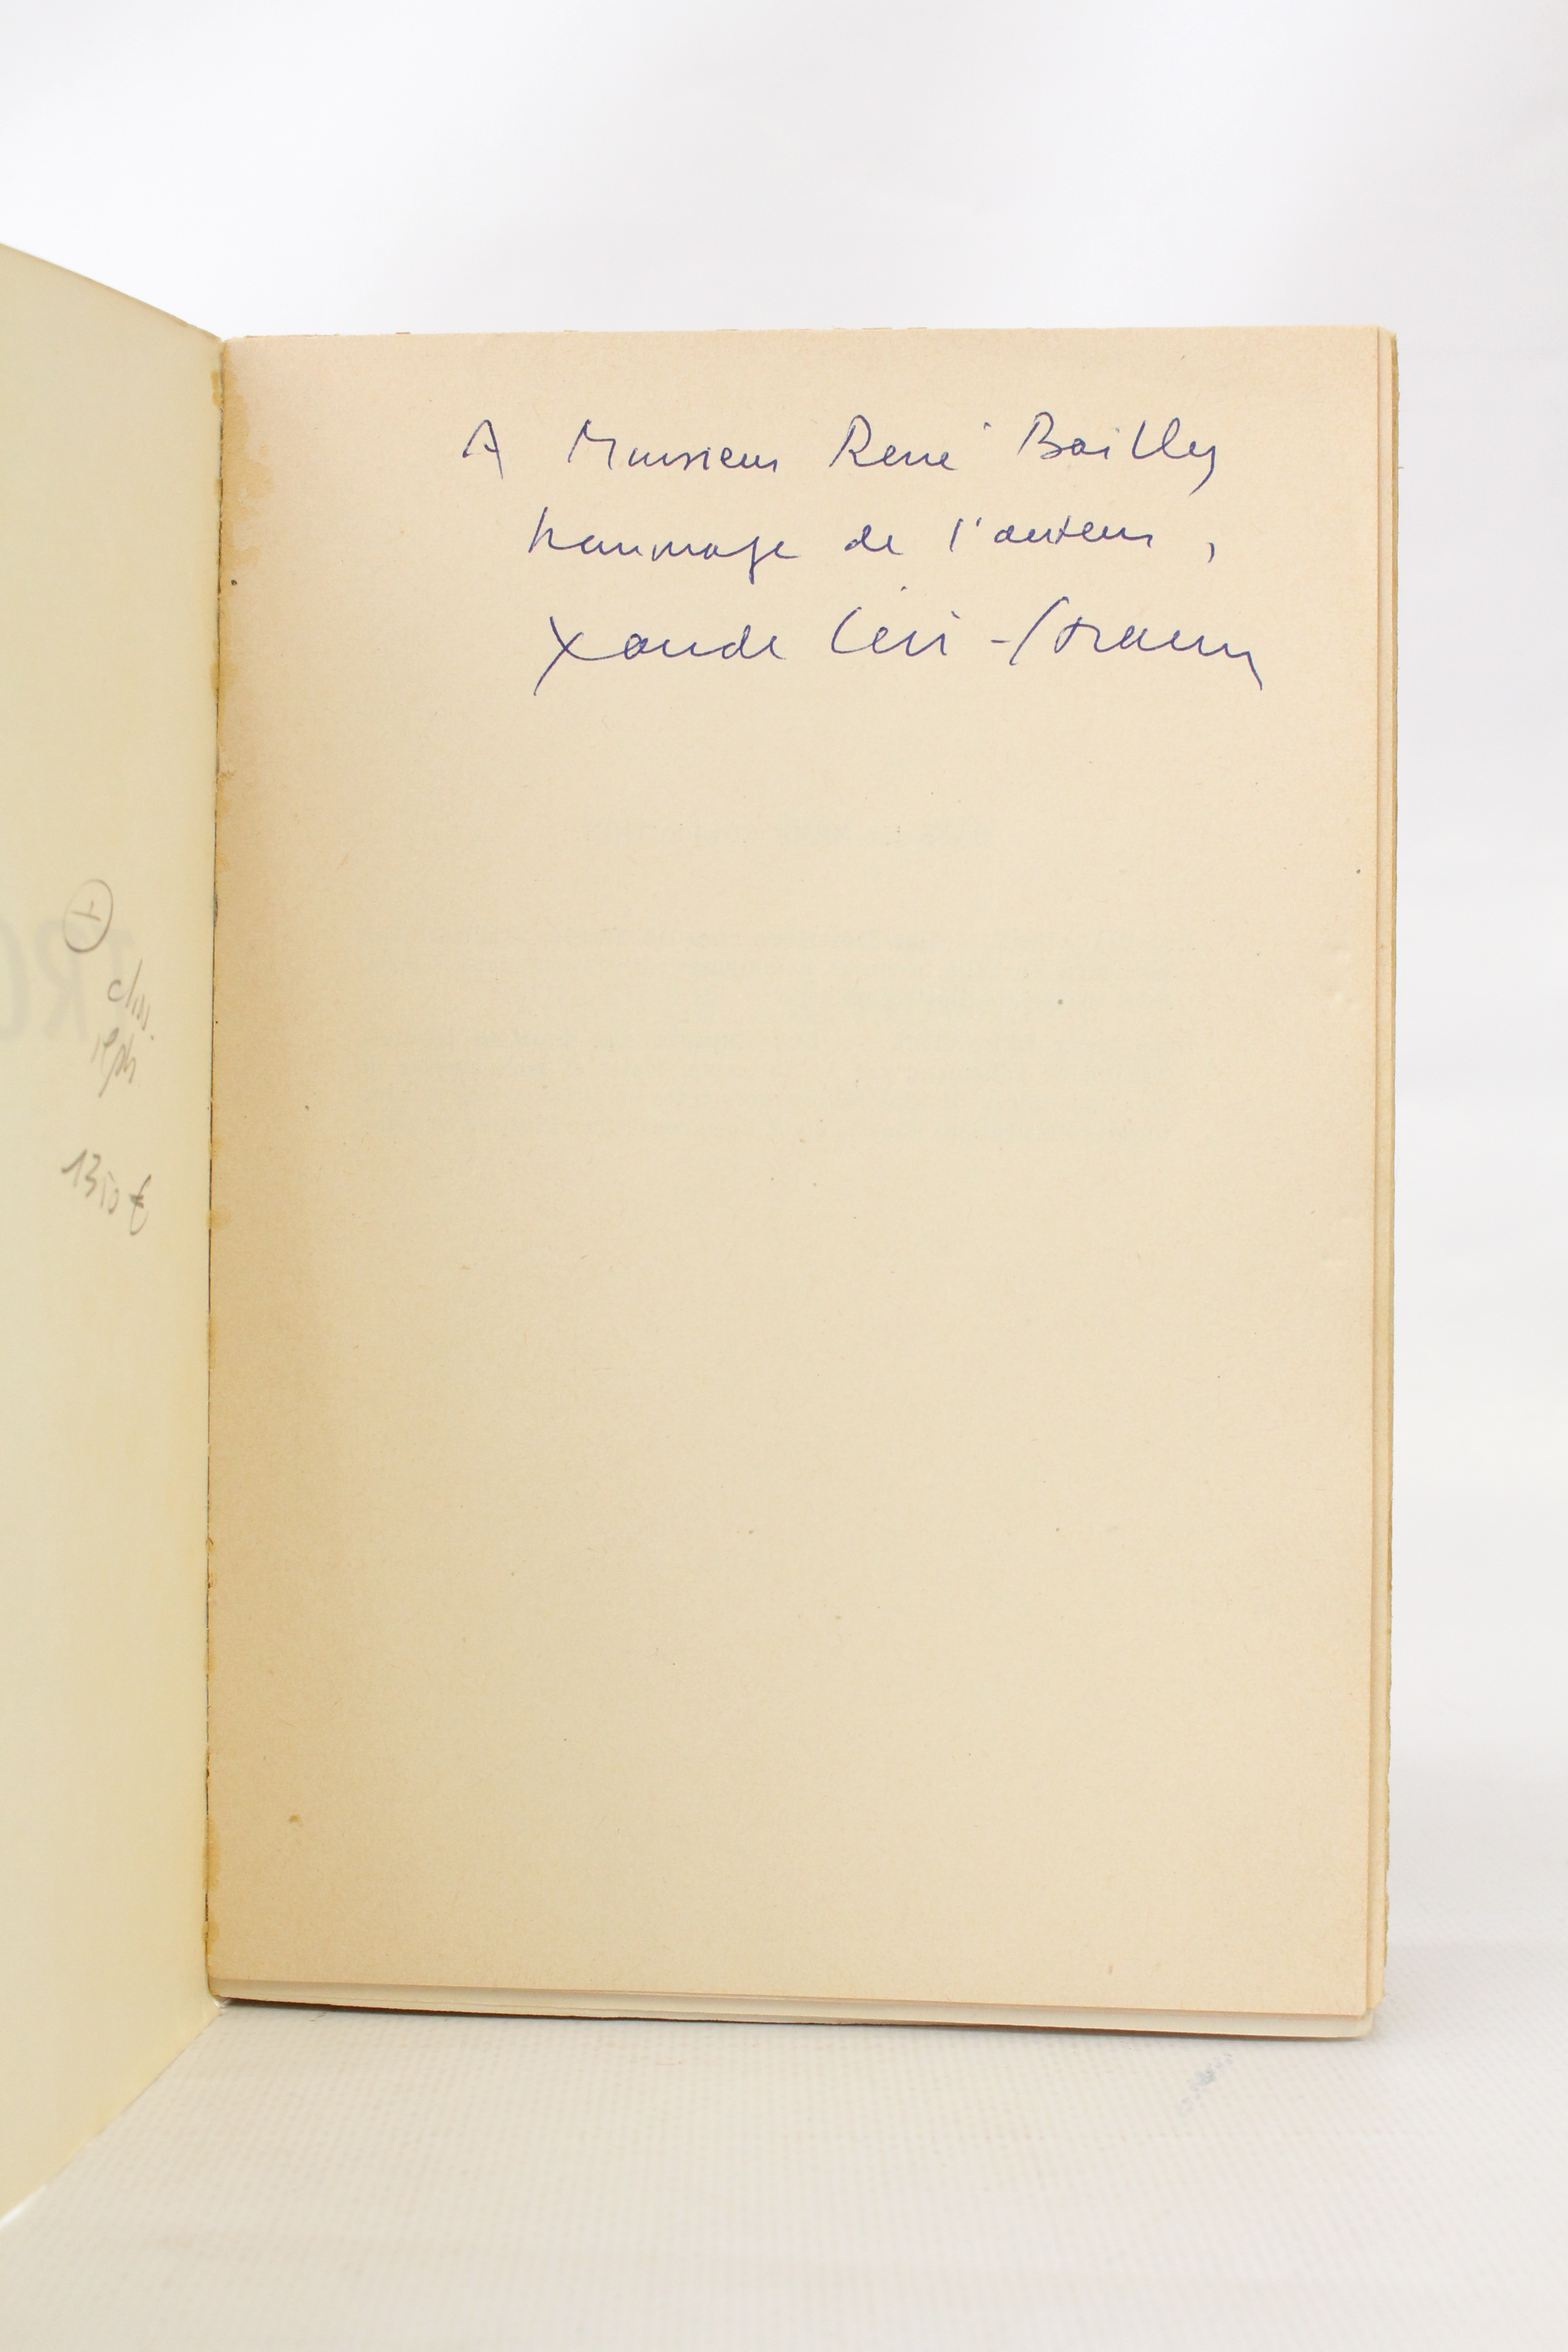 A Monsieur René Bailly
hommage de l'auteur,
Claude Lévi-Strauss
1350 €